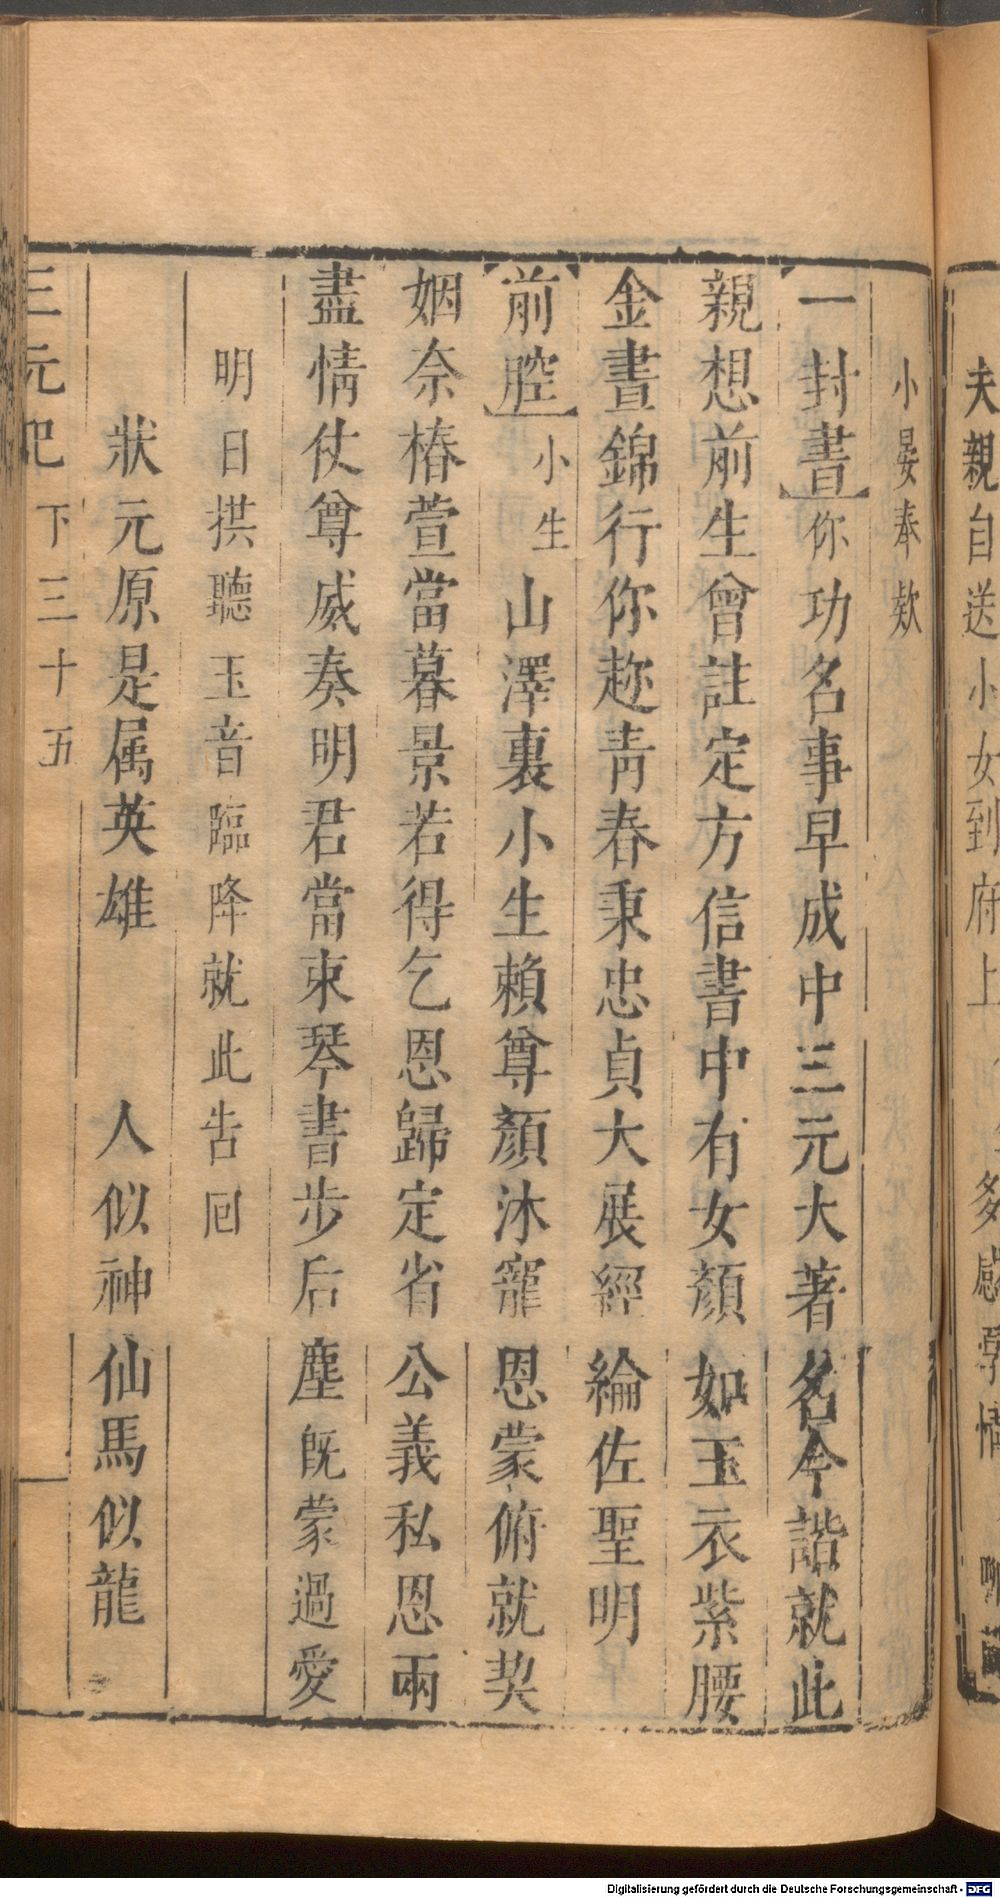 夫親自送小女到府上
小晏奉欵
一封書你功名事早成中三元大著名今諧就此
親想前生曾註定方信書中有女顏如玉衣紫腰
金晝錦行你趂青春秉忠貞大展經綸佐聖明
前腔小生山澤裏小生賴尊顏沐寵恩蒙俯就契
姻奈椿萱當暮景若得乞恩歸定省公義私恩兩
盡情仗尊威奏明君當束琴書步后塵既蒙過愛
明日拱聽玉音臨降就此告囘
狀元原是属英雄 人似神仙馬似龍
三元記 下 三十五
Digitalisierung gefördert durch die Deutsche Forschungsgemeinschaft - DFG